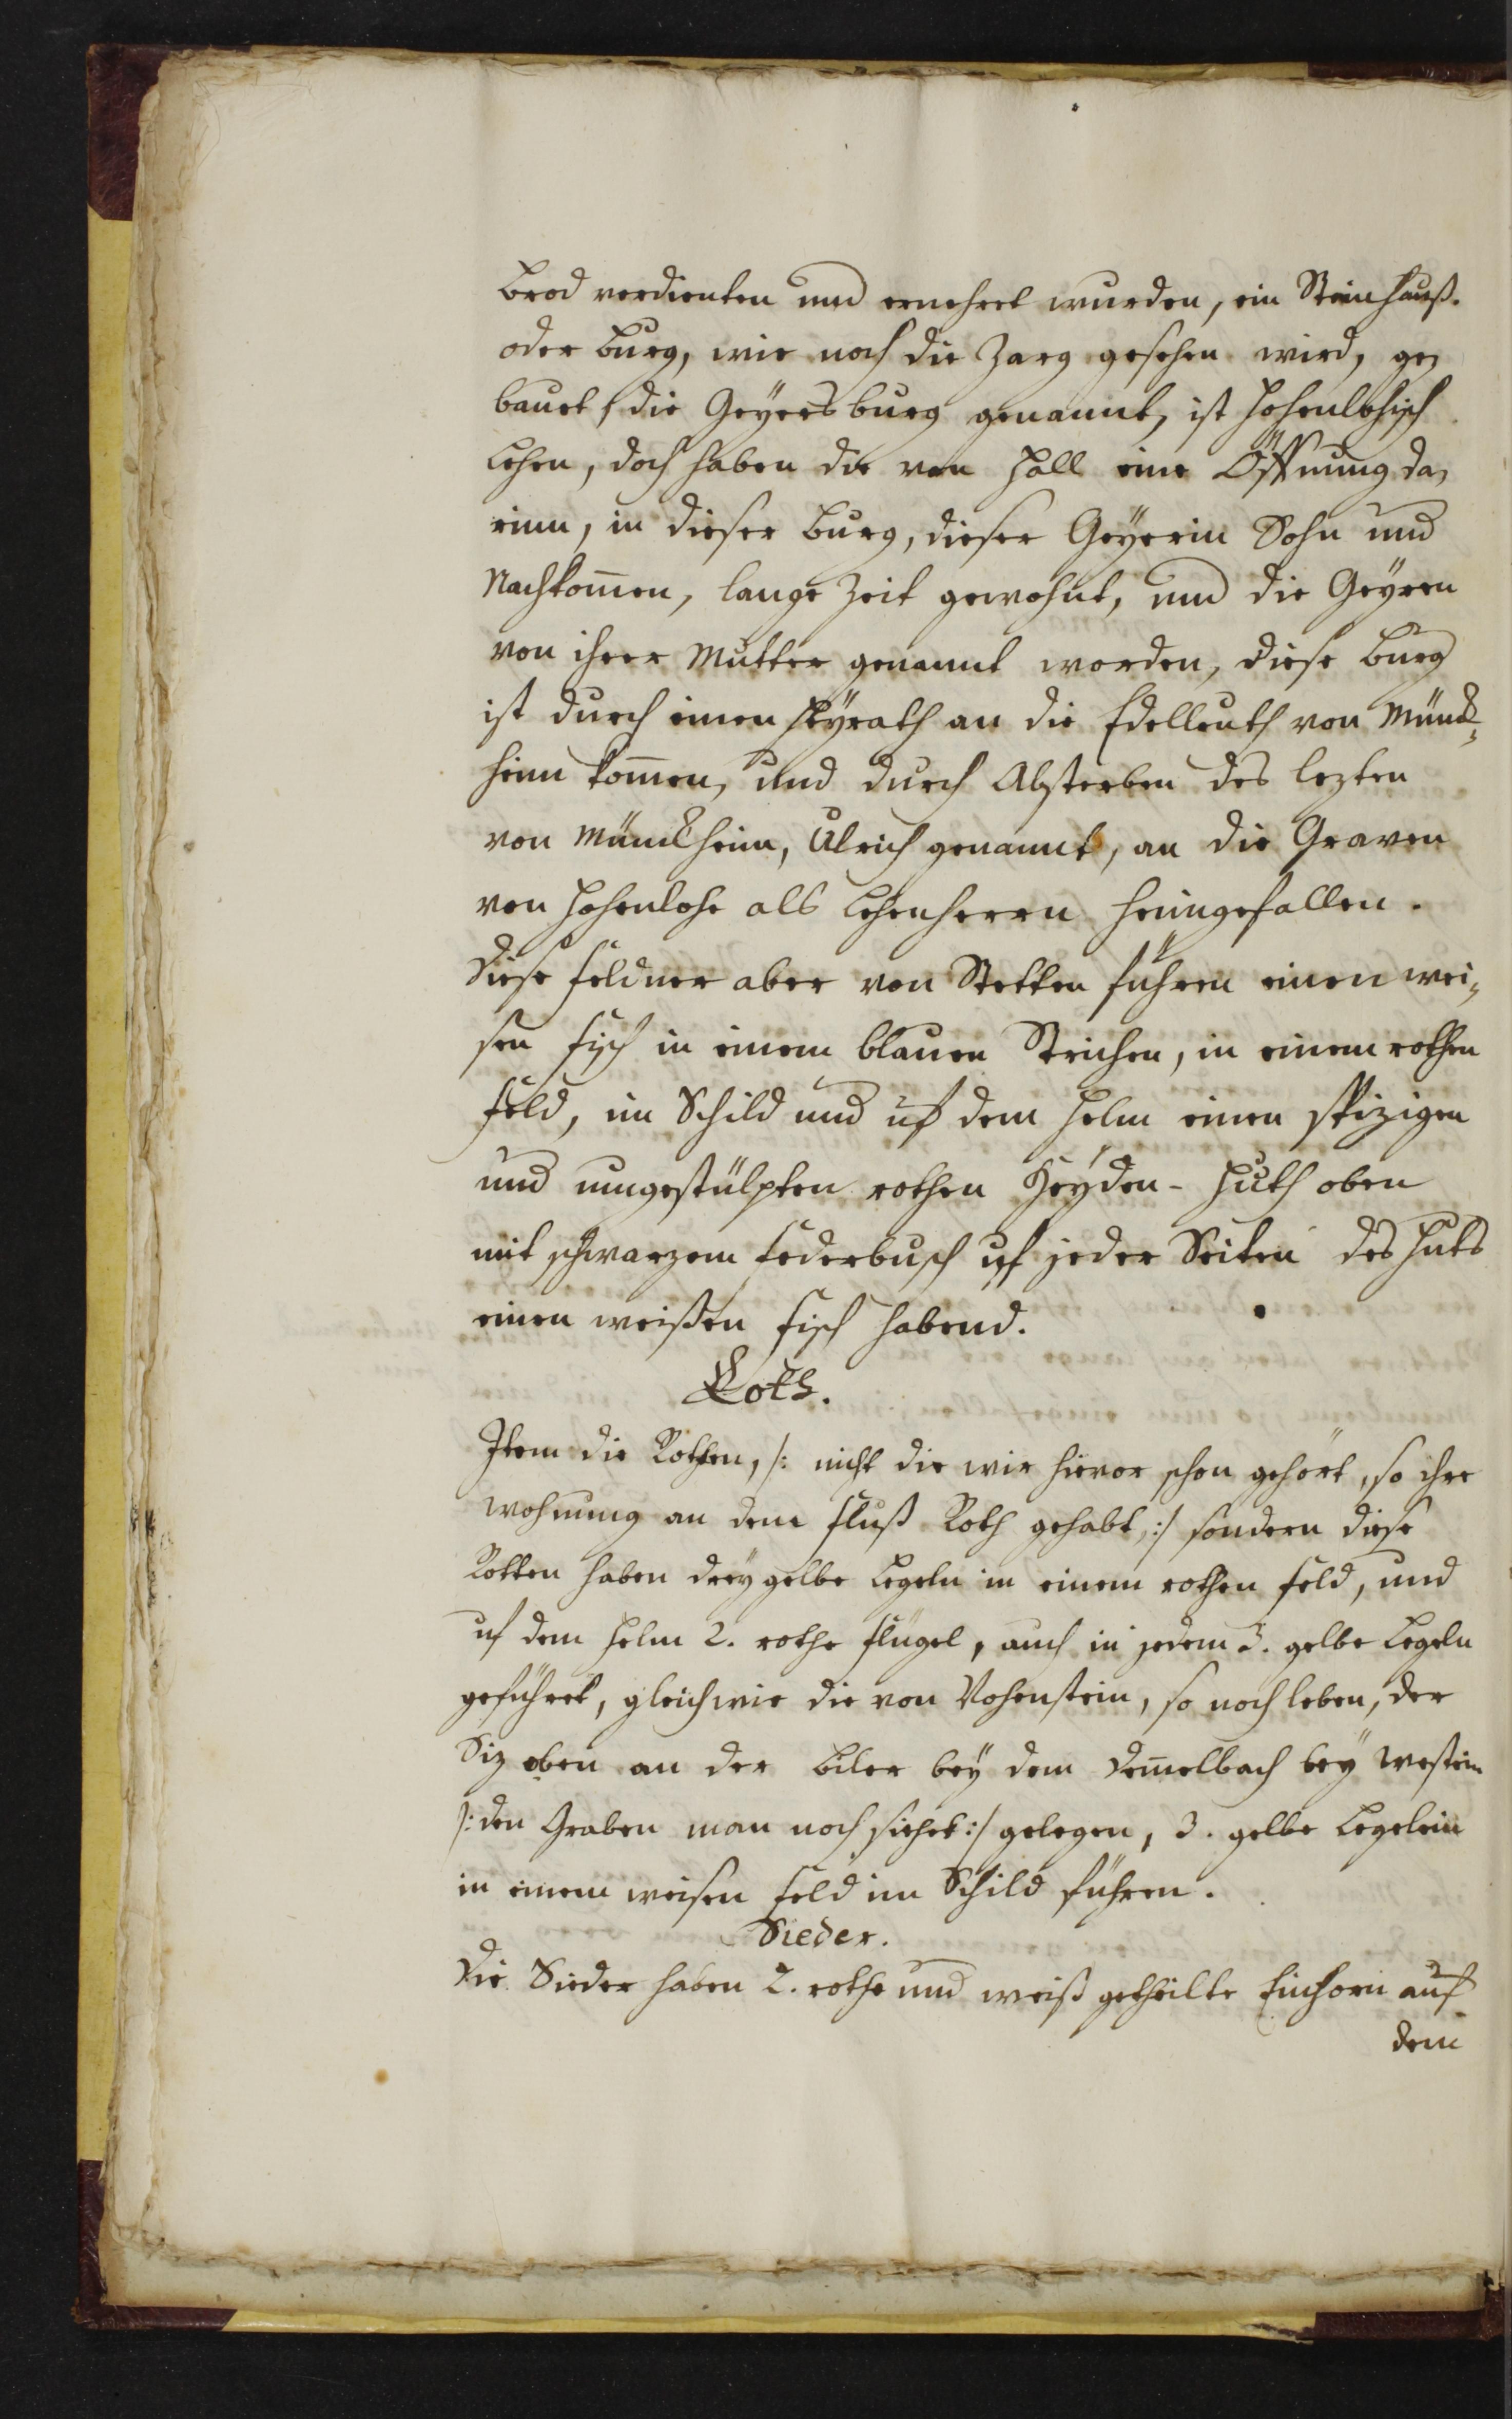 Brod verdienten und ernehret wurden, ein Steinhauß.
oder Burg, wie noch die Zarg gesehen wird, ge„
bauet, die Geyersburg genannt, ist Hohenlohisch
Lehen, doch haben die von Hall eine Öffnung da„
rinn, in dieser Burg, dieser Geÿerin Sohn und
Nachkom̄en, lange Zeit gewohnt, und die Geÿren
von ihrer Mutter genannt worden, diese Burg
ist durch einen Heÿrath an die Edelleuth von Münck„
heim kom̄en, und durch Absterben des lezten
von Münckheim, Ulrich genannt, an die Graven
von Hohenlohe als Lehenherrn heimgefallen.
Diese Feldner aber von Stetten führen einen wei„
sen Fisch in einem blauen Strichen, in einem rothen
Feld, im Schild und uf dem Helm einen spizigen
und umgestülpten rothen Heÿden-Huth oben
mit schwarzem Federbusch uf jeder Seiten des Huts
einen weißen Fisch habend.
Roth.
Item die Rothen, /: nicht die wir hievor schon gehört, so ihre
Wohnung an dem Fluß Roth gehabt, :/ sondern diese
Rotten haben dreÿ gelbe Legeln in einem rothen Feld, und
uf dem Helm 2. rothe Flügel, auch in jedem 3. gelbe Legeln
geführet, gleichwie die von Vohenstein, so noch leben, der
Siz oben an der Biler beÿ dem bach beÿ Westein
/: den Graben man noch siehet :/ gelegen, 3. gelbe Legelein
in einem weisen Feld im Schild führen.
Sieder.
Die Sieder haben 2. rothe und weiß getheilte Einhorn auf
dem